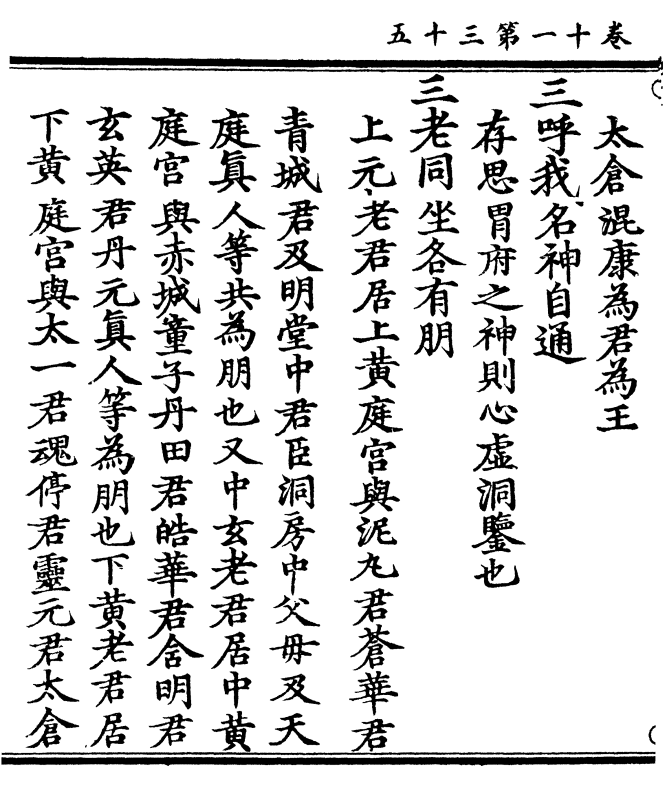 卷十一第三十五
太倉混康為君為王
三呼我名神自通
存思胃府之神則心虛洞鑒也
三老同坐各有朋
上元老君居上黃庭宮與泥丸君蒼華君
青城君及明堂中君臣洞房中父母及天
庭真人等共為朋也又中玄老君居中黃
庭宮與赤城童子丹田君皓華君含明君
玄英君丹元真人等為朋也下黃老君居
下黃庭宮與太一君魂停君靈元君太倉